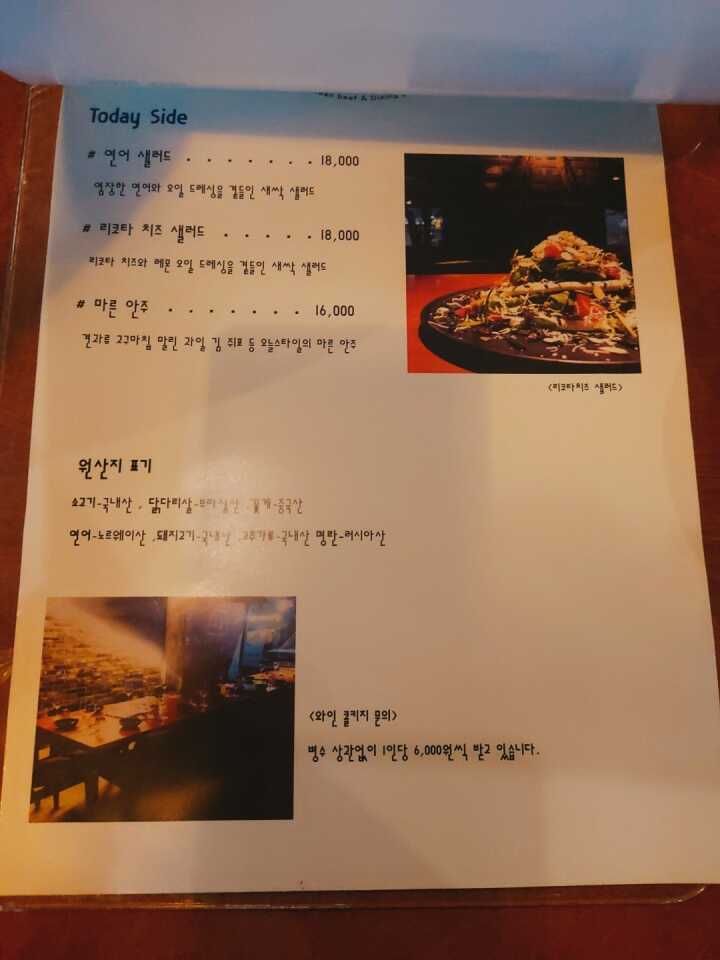 Beef & Dining
Today Side
# 연어 샐러드 . . . . . . . 18,000
염장한 연어와 오일 드레싱을 곁들인 새싹 샐러드
# 리코타 치즈 샐러드 . . . . . 18,000
리코타 치즈와 레몬 오일 드레싱을 곁들인 새싹 샐러드
# 마른 안주 . . . . . . . 16,000
견과류 고구마칩 말린 과일 김 쥐포 등 오늘스타일의 마른 안주
<리코타치즈 샐러드>
원산지 표기
소고기-국내산 , 닭다리살-브라질산 ,꽃게-중국산
연어-노르웨이산 ,돼지고기-국내산 ,고추가루-국내산 명란-러시아산
<와인 콜키지 문의>
병수 상관없이 1인당 6,000원씩 받고 있습니다.